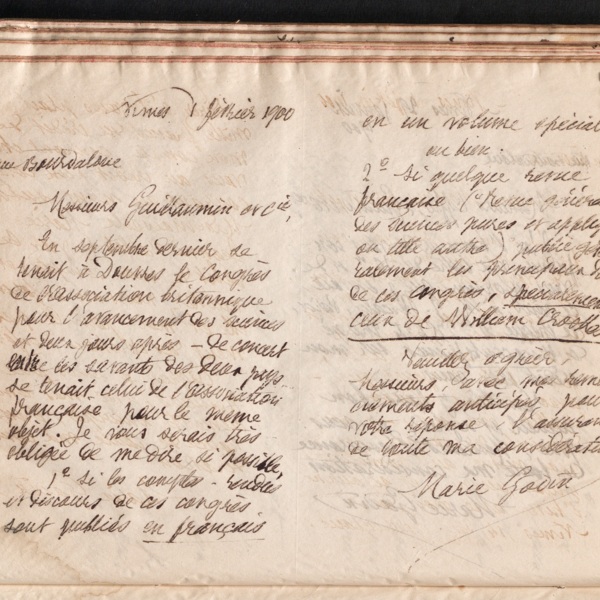 Nîmes 1 février 1900
rue Bourdaloue
Messieurs Guillaumin et Cie,
En septembre dernier se
tenait à Douvres le Congrès
de l'association britannique
pour l'avancement des sciences
et deux jours après – de concert
entre les savants des deux pays
se tenait celui de l'association
française pour le même
objet. Je vous serais très
obligée de me dire, si possible,
1º si les comptes-rendus
et discours de ces congrès
sont publiés en français
en un volume spécial
ou bien.
2º si quelque revue
française (Revue générale
des sciences pures et appliq
ou telle autre) publie
les principaux
de ces congrès, spécialement
ceux de William Crookes
Veuillez agréer,
Messieurs, avec mes remer
ciements anticipés pour
votre réponse l'assurance
de toute ma considération
Marie Godin